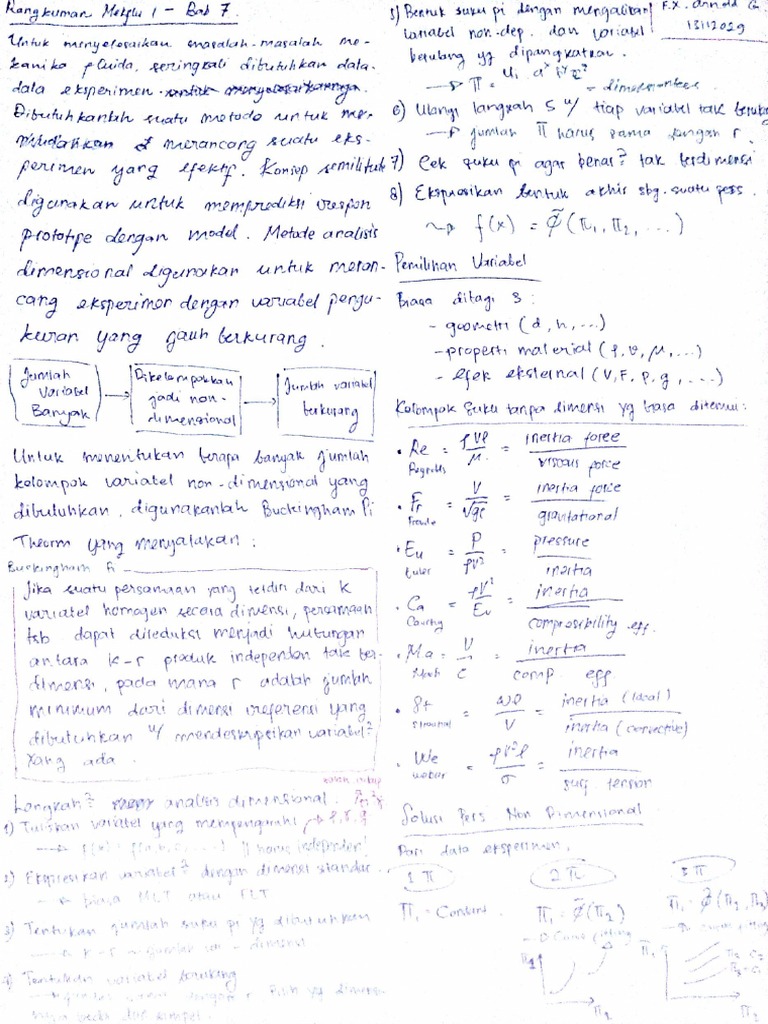 Rangkuman Mekflu 1 - Bab 7.
Untuk menyelesaikan masalah-masalah me-
kanika fluida, seringkali dibutuhkan data-
data eksperimen
Dibutuhkanlah suatu metode untuk me-
mudahkan & merancang suatu eks-
perimen yang efektif. Konsep similitude
digunakan untuk memprediksi respon
prototipe dengan model. Metode analisis
dimensional digunakan untuk meran-
cang eksperimen dengan variabel pengu-
kuran yang jauh berkurang.
Jumlah
Variabel
Banyak
Dikelompokkan
jadi non-
dimensional
Jumlah variabel
berkurang
Untuk menentukan berapa banyak jumlah
kelompok variabel non-dimensional yang
dibutuhkan, digunakanlah Buckingham Pi
Theorm yang menyatakan :
Buckingham
Jika suatu persamaan yang terdiri dari k
variabel homogen secara dimensi, persamaan
tsb dapat direduksi menjadi hubungan
antara k-r produk independen tak ber-
dimensi, pada mana r adalah jumlah
minimum dari dimensi referensi yang
dibutuhkan u/ mendeskripsikan variabel²
yang ada.
Langkah² analisis dimensional.
1) Tuliskan variabel yang mempengaruhi
harus independen!
2) Ekspresikan variabel² dengan dimensi standar.
biasa MLT atau FLT
3) Tentukan jumlah suku pi yg dibutuhkan
4) Tentukan variabel
F.X. Arnold G.
13112029
5) Bentuk suku pi dengan mengalikan
variabel non-dep. dan variabel
berulang yg dipangkatkan.
6) Ulangi langkah 5 u/ tiap variabel tak berulang
→ jumlah Π harus sama dengan r.
7) Cek suku pi agar benar² tak berdimensi
8) Ekspresikan bentuk akhir sbg. suatu pers.
f(x) = φ̃(π₁, π₂, ...)
Pemilihan Variabel
Biasa dibagi 3 :
- geometri (d, h, ...)
- properti material (ρ, υ, μ, ...)
- efek eksternal (V, F, P, g, ...)
Kelompok suku tanpa dimensi yg biasa ditemui :
• Re = ρVl/μ = inertia force/viscous force
Reynolds
• Fr = V/√gl = inertia force/gravitational
Froude
• Eu = P/ρV² = pressure/inertia
Euler
• Ca = ρV²/Ev = inertia/compressibility eff.
Cauchy
• Ma = V/c = inertia/comp. eff.
Mach
• St = ωl/V = inertia (local)/inertia (convective)
Strouhal
• We = ρV²l/σ = inertia/surf tension
Weber
Solusi Pers Non Dimensional
Dari data eksperimen,
1 π
2 π
3 π
π₁ = constant
π₁ = φ̃(π₂)
π₁ = φ̃(π₂, π₃)